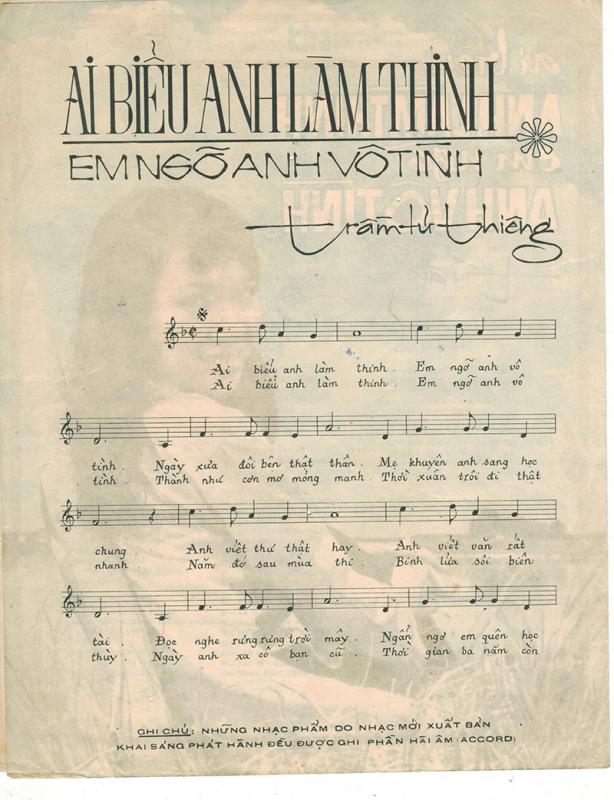 AI BIỂU ANH LÀM THINH
EM NGỠ ANH VÔ TÌNH
trầm tử thiêng
Ai biểu anh làm thinh. Em ngỡ anh vô
Ai biểu anh làm thinh. Em ngỡ anh vô
tình. Ngày xưa đôi bên thật thân. Mẹ khuyên anh sang học
tình. Thành như cơn mơ mỏng manh. Thời xuân trôi đi thật
chung. Anh viết thư thật hay. Anh viết văn rất
nhanh Năm đó sau mùa thi. Binh lửa sôi biên
tài. Đọc nghe rưng rưng trời mây. Ngẩn ngơ em quên học
thùy. Ngày anh xa cô bạn cũ. Thời gian ba năm còn
GHI CHÚ: NHỮNG NHẠC PHẨM DO NHẠC MỚI XUẤT BẢN
KHAI SÁNG PHÁT HÀNH ĐỀU ĐƯỢC GHI PHẦN HÀI ÂM (ACCORD)